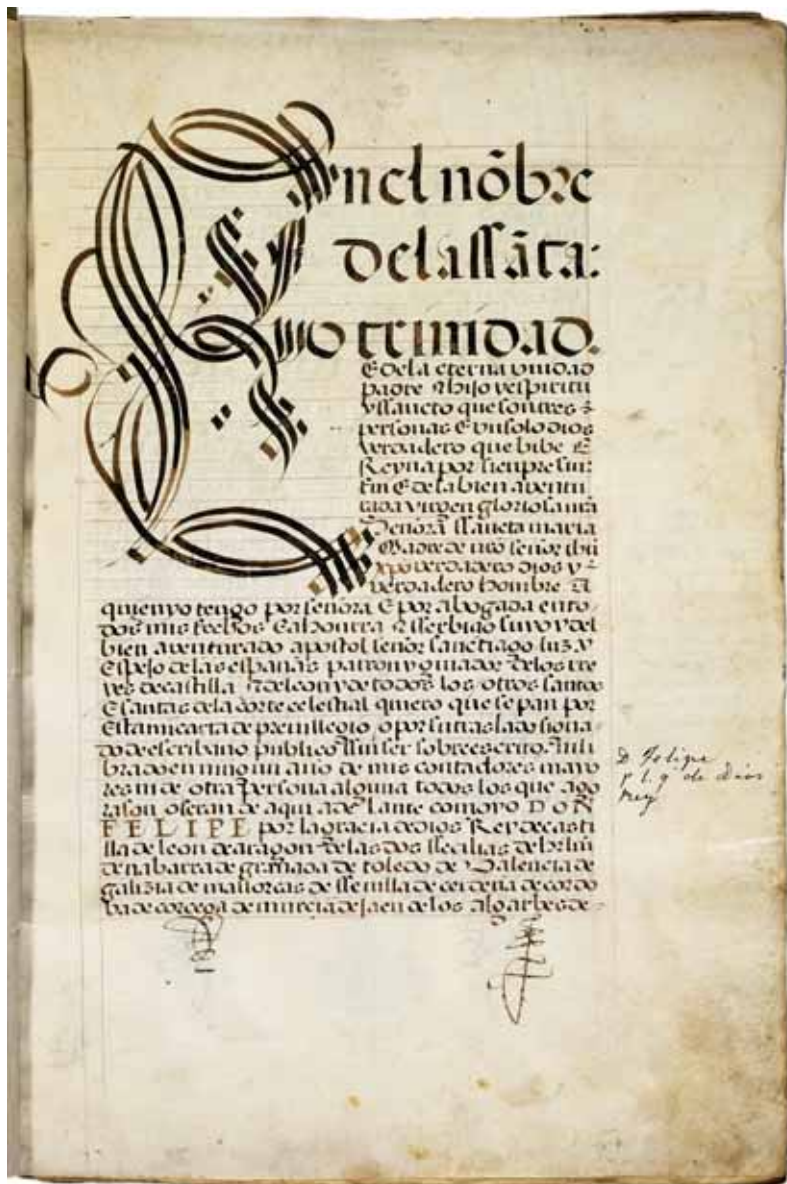 En el nõbre
de la ssãta:
trinidad.
E de la eterna vnidad
padre E hijo y espiritu
ssancto que son tres
personas E vn solo dios
verdadero que bibe E
Reyna por sienpre sin
fin E de la bien aventu
rada virgen gloriosa nrã
Señora ssancta maria
Madre de nrõ señor ihũ
xpo verdadero dios y
verdadero hombre a
quien yo tengo por señora E por abogada en to
dos mis fechos E a honrra E sserbiçio suyo y del
bien aventurado apostol señor sanctiago luz y
Espejo de las españas patron y guiador de los rre
yes de castilla E de leon y de todos los otros santos
E santas de la corte celestial quiero que sepan por
Esta mi carta de preuillegio o por su traslado signa
do de escribano publico ssin ser sobreescrito ni li
brado en ningun año de mis contadores mayo
res ni de otra persona alguna todos los que ago
ra son o seran de aqui adelante como yo DON
FELIPE por la graçia de dios Rey de casti
lla de leon de aragon de las dos sseçilias de hrlm
de nabarra de granada de toledo de Valençia de
galizia de mallorcas de sseuilla de çerdeña de cordo
ba de corçega de murçia de jaen de los algarbes de
D. Felipe
p. l. g. de Dios
Rey